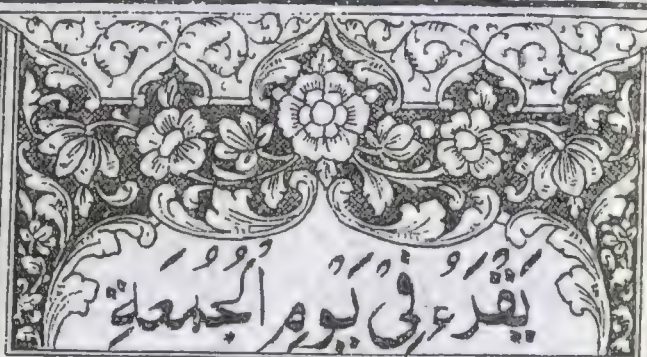 يُقْرَءُ فِي يَوْمِ الْجُمُعَةِ